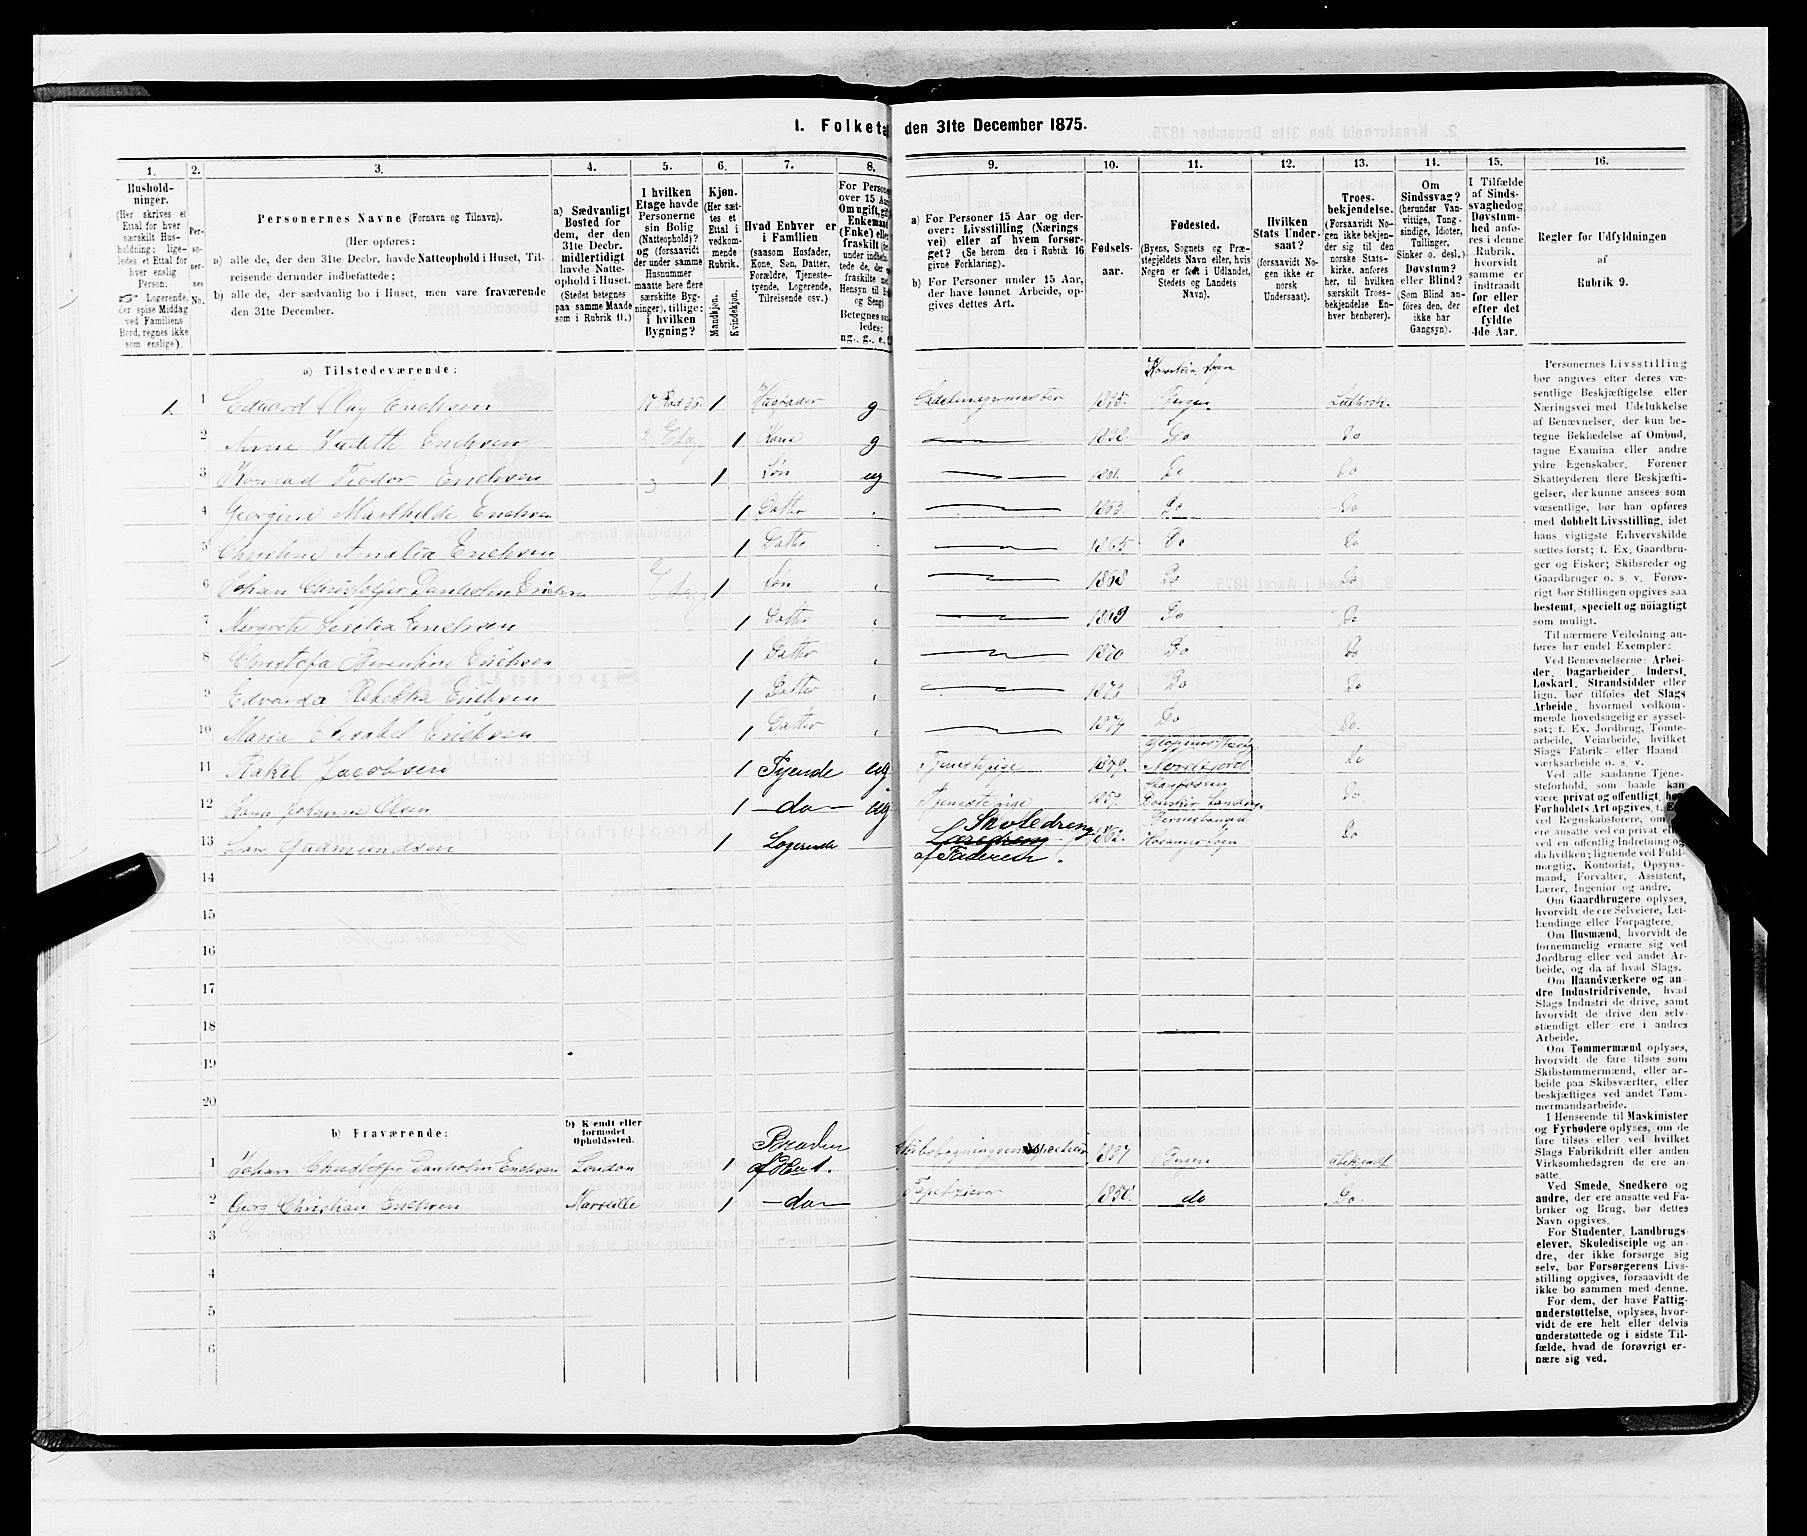 1. Folketæ den 31te December 1875.
1. 2. 3. 4. 5. 6. 7. 8. 9. 10. 11. 12. 13. 14. 15. 16.
Hushold-
ninger.
(Her skrives et
Ettal for hver
særskilt Hus-
holdning; lige-
ledes et Ettal for
hver enslig
Person.
Logerende,
der spise Middag
ved Familiens
Bord, regnes ikke
som enslige).
Per-
so-
ner-
nes
No.
Personernes Navne (Fornavn og Tilnavn).
(Her opføres:
a) alle de, der den 31te Decbr. havde Natteophold i Huset, Til-
reisende derunder indbefattede;
b) alle de, der sædvanlig bo i Huset, men vare fraværende
den 31te December.
a) Sædvanligt
Bosted for
dem, der den
31te Decbr.
midlertidigt
havde Natte-
ophold i Huset.
(Stedet betegnes
paa samme Maade
som i Rubrik 11.)
I hvilken
Etage havde
Personerne
sin Bolig
(Natteophold)?
og (forsaavidt
der under samme
Husnummer
maatte høre flere
særskilte Byg-
ninger), tillige:
i hvilken
Bygning?
Kjøn.
(Her sæt-
tes et
Ettal i
vedkom-
mende
Rubrik.
Mandkjøn.
Kvindekjøn.
Hvad Enhver er
i Familien
(saasom Husfader,
Kone, Søn, Datter,
Forældre, Tjeneste-
tyende, Logerende,
Tilreisende osv.)
For Persone
over 15 Aar
Om ugift, gif
Enkemand
(Enke) elle
fraskilt (de
Hensyn til B
og Seng)
Betegnes saa
ledes:
ug., g., e., f
a) For Personer 15 Aar og der-
over: Livsstilling (Nærings
vei) eller af hvem forsør-
get? (Se herom den i Rubrik 16
givne Forklaring).
b) For Personer under 15 Aar,
der have lønnet Arbeide, op-
gives dettes Art.
Fødsels-
aar.
Fødested.
(Byens, Sognets og Præ-
stegjeldets Navn eller, hvis
Nogen er født i Udlandet,
Stedets og Landets
Navn).
Hvilken
Stats Under-
saat?
(forsaavidt No-
gen ikke er
norsk
Undersaat).
Troes-
bekjendelse.
(Forsaavidt No-
gen ikke bekjen-
der sig til den
norske Stats-
kirke, anføres
her, til hvilken
særskilt Troes-
bekjendelse En-
hver henhører).
Om
Sindssvag?
(herunder Van-
vittige, Tung-
sindige, Idioter,
Tullinger,
Sinker o. desl.)
Døvstum?
eller Blind?
(Som Blind an-
føres den, der
ikke har
Gangsyn).
I Tilfælde
af Sinds-
svaghed og
Døvstum-
hed anfø-
res i denne
Rubrik,
hvorvidt
samme er
indtraadt
før eller
efter det
fyldte
4de Aar.
Regler for Udfyldningen
af
Rubrik 9.
a) Tilstedeværende:
1. 1 Eduard Olay Erichsen 1 Husfader g Sadelmagermester Bergen Luthersk.
2 Anne Erichsen 2 Etage 1 Kone g 1838 Do Do
3 Konrad Teodor Erichsen 1 Søn ug 1861 Do Do
4 Georgine Mathilde Erichsen 1 Datter 1863 Do Do
5 Christine Amalia Erichsen 1 Datter 1865 Do Do
6 Johan Christoffer Danholm Erichsen 1 Søn 1868 Do Do
7 Cecilia Erichsen 1 Datter 1869 Do Do
8 Christofa Berentine Erichsen 1 Datter 1870 Do Do
9 Edvarda Rebekka Erichsen 1 Datter Do Do
10 Maria Elisabet Erichsen 1 Datter 1874 Do Do.
11 Rakel Jacobsen 1 Tyende ug Tjenestepige Nordfjord Do
12 Johanne Olsen 1 — do — ug Tjenestepige Do
13 Gudmundsen 1 Logerende Skoledreng af Faderen. 1862. Do
14
15
16
17
18
19
20
b) Fraværende:
b) Kendt eller
formodet
Opholdssted.
1 Johan Christoffer Danholm Erichsen London 1 Broder af Hust. 1837 Bergen ubekjendt
2 Georg Christian Erichsen Marseille 1 — do — Tapetzierer 1850. do Do.
3
4
5
6
Personernes Livsstilling
bør angives efter deres væ-
sentlige Beskjæftigelse eller
Næringsvei med Udelukkelse
af Benævnelser, der kun be-
tegne Beklædelse af Ombud,
tagne Examina eller andre
ydre Egenskaber. Forener
Skatteyderen flere Beskjæfti-
gelser, der kunne ansees som
væsentlige, bør han opføres
med dobbelt Livsstilling, idet
hans vigtigste Erhvervskilde
sættes først; f. Ex. Gaardbru-
ger og Fisker; Skibsreder og
Gaardbruger o. s. v. Forøv-
rigt bør Stillingen opgives saa
bestemt, specielt og nöiagtigt
som muligt.
Til nærmere Veiledning an-
føres her endel Exempler:
Ved Benævnelserne: Arbei-
der, Dagarbeider, Inderst,
Løskarl, Strandsidder eller
lign. bør tilføies det Slags
Arbeide, hvormed vedkom-
mende hovedsagelig er syssel-
sat; f. Ex. Jordbrug, Tomte-
arbeide, Veiarbeide, hvilket
Slags Fabrik- eller Haand
værksarbeide o. s. v.
Ved alle saadanne Tjene-
steforhold, som baade kan
være privat og offentlig, bør
Forholdets Art opgives, t. E
ved Regnskabsførere, om
ere ansatte ved en privat el
ved en offentlig Indretning og
da hvilken; lignende ved Fuld-
mægtig, Kontorist, Opsyns-
mand, Forvalter, Assistent,
Lærer, Ingeniør og andre.
Om Gaardbrugere oplyses,
hvorvidt de ere Selveiere, Lei-
lændinge eller Forpagtere.
Om Husmænd, hvorvidt de
fornemmelig ernære sig ved
Jordbrug eller ved andet Ar-
beide, og da af hvad Slags.
Om Haandværkere og an-
dre Industridrivende, hvad
Slags Industri de drive, samt
hvorvidt de drive den selv-
stændigt eller ere i andres
Arbeide.
Om Tømmermænd oplyses,
hvorvidt de fare tilsøs som
Skibstømmermænd, eller ar-
beide paa Skibsværfter, eller
beskjæftiges ved andet Tøm-
mermandsarbeide.
I Henseende til Maskinister
og Fyrbødere oplyses, om de
fare tilsøs eller ved hvilket
Slags Fabrikdrift eller anden
Virksomhedsgren de ere an-
satte.
Ved Smede, Snedkere og
andre, der ere ansatte ved Fa-
briker og Brug, bør dettes
Navn opgives.
For Studenter, Landbrugs-
elever, Skoledisciple og an-
dre, der ikke forsørge sig
selv, bør Forsørgerens Livs-
stilling opgives, forsaavidt de
ikke bo sammen med denne.
For dem, der have Fattig-
understøttelse, oplyses, hvor-
vidt de ere helt eller delvis
understøttede og i sidste Til-
fælde, hvad de forøvrigt er-
nære sig ved.